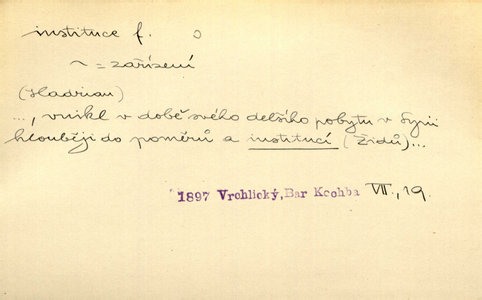 instituce f.
~ = zařízení
(Hadrian)
..., vnikl v době svého delšího pobytu v Syrii
hlouběji do poměrů a institucí (Židů)...
1897 Vrchlický, Bar Kochba VII, 19.